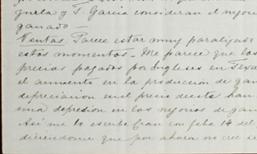 zuela y T. Garcia consideran el negocio
ganado.-
Ventas. Parece estar muy paralizado
estos momentos.- Me parece que los
precios pagados por Ingleses en
el aumento en la produccion de gan
depreciacion en el precio
una depresion en los negocios de gan
Asi me lo escribe Cian con fecha 14 del
diciendome que por ahora no cree